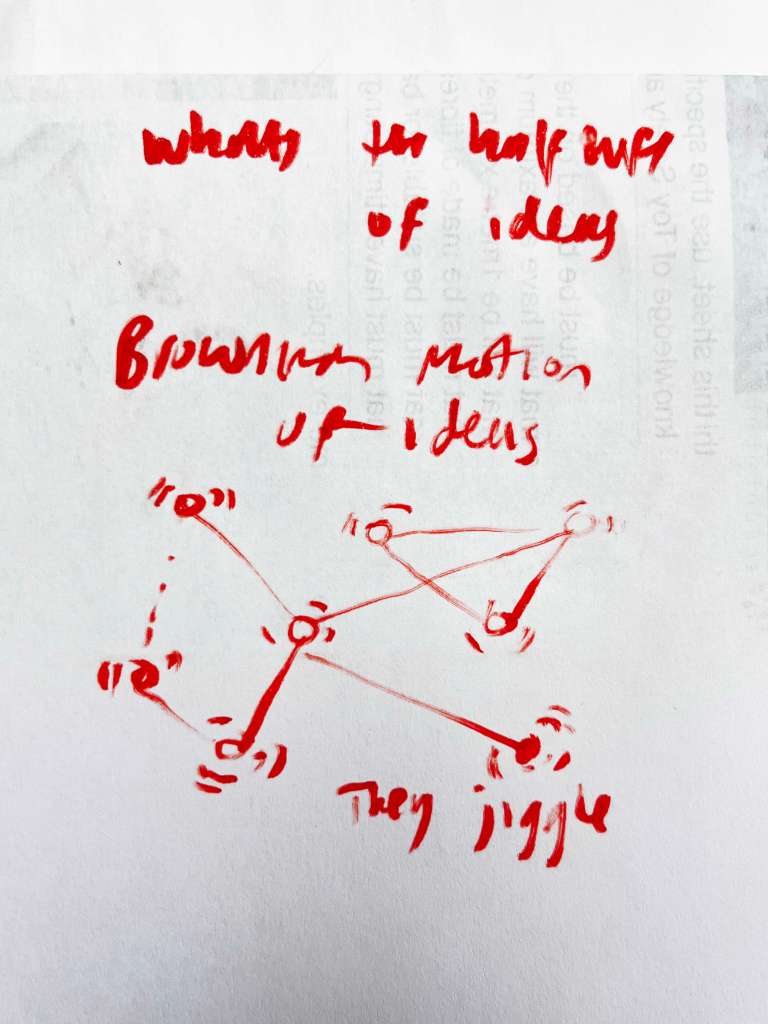 whats the half life
of ideas
Brownian motion
of ideas
They jiggle